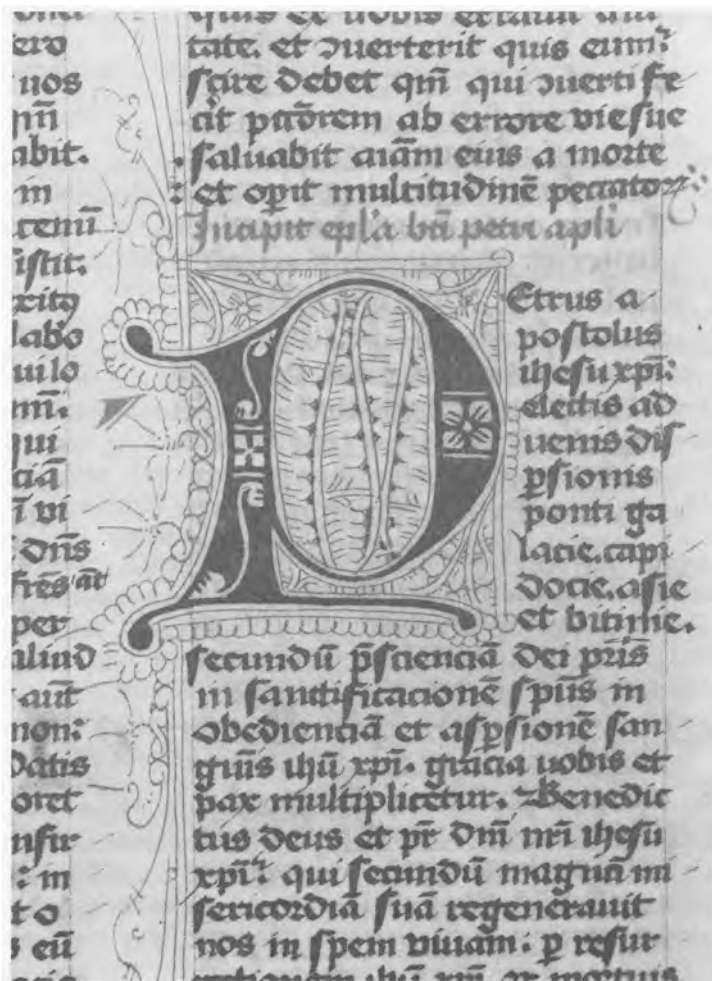 ero
uos
qm̄
abit.
in
tenū
istit:
xito
labo
uilo
m̄.
qui
ciā
ī vi
dn̄s
frēs at̄
per
aliud
aut̄
non:
datis
oret
nfir
: in
t o
s eū
quis ex uobis errauit
tate. et ↄuerterit quis eum:
scire debet qm̄ qui ↄuerti fe
cit pcc̄orem ab errore vie sue
saluabit aīam eius a morte
et op̄it multitudinē peccator
Incipit ep̄la bt̄i petri apl̄i
PEtrus a
postolus
ihesu xp̄i:
electis ad
uenis dis
ꝑsionis
ponti ga
lacie. capi
docie. asie
et bitinie.
secundū p̄scienciā dei pr̄is
in sanctificacionē spūs in
obedienciā et asꝑsionē san
guīs ihū xp̄i. gracia uobis et
pax multiplicetur. Benedic
tus deus et pr̄ dn̄i nr̄i ihesū
xp̄i: qui secundū magnā mi
sericordiā suā regenerauit
nos in spem viuam: ꝑ resur
rectionem ihū xp̄i ex mortuis